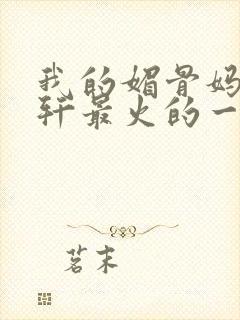 我的媚骨妈
轩最火的一
茗末